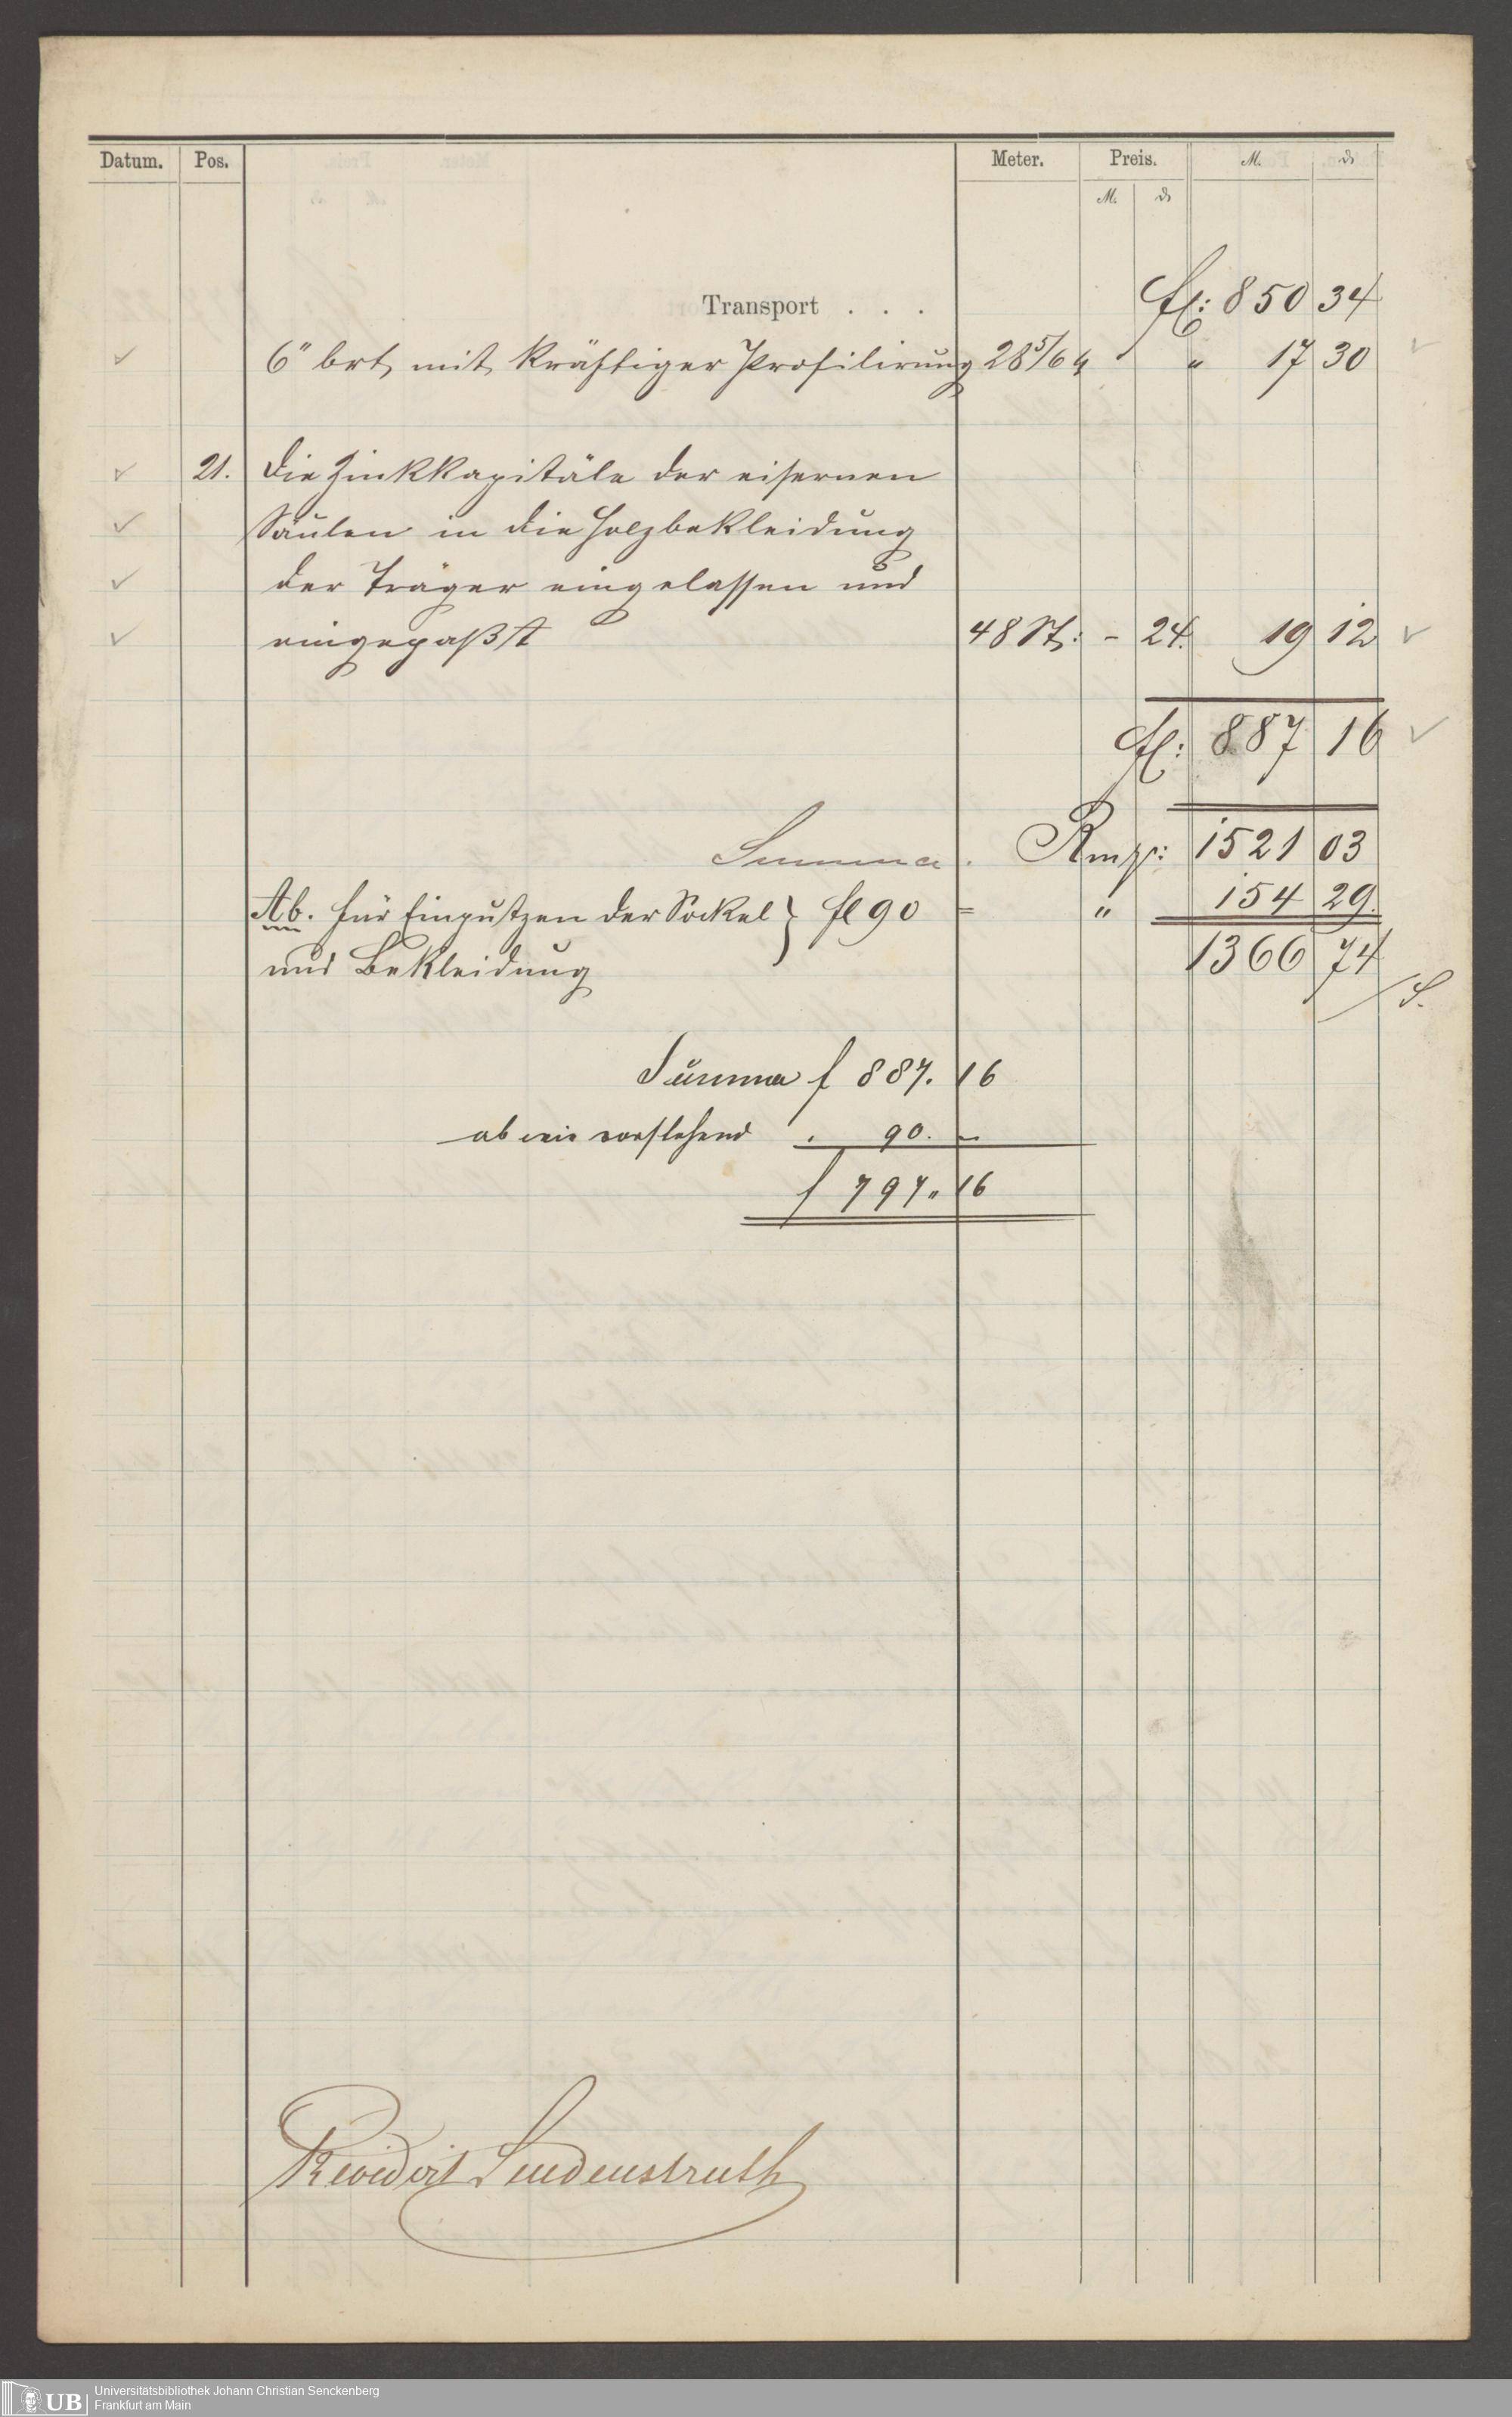 Datum. Pos. Meter. Preis. M. ₰
M. ₰
Transport . . . fl: 850 34
6" brt, mit kräftiger Profilirung 28 5/6 " 17 30
21. Die Zinkkapitäle der eisernen
Säulen in die Holzbekleidung
der Träger eingelassen und
eingepaßt 48 St: - 24. 19 12
fl: 887 16
Summa. Rmk: 1521 03
Ab. für Einputzen der Sockel } fl 90 = " 154 29.
und Bekleidung 1366 74
S.
Summa f 887. 16
ab wie vorstehend " 90. –
f 797. 16
Revidirt Lindenstruth
UB
Universitätsbibliothek Johann Christian Senckenberg
Frankfurt am Main